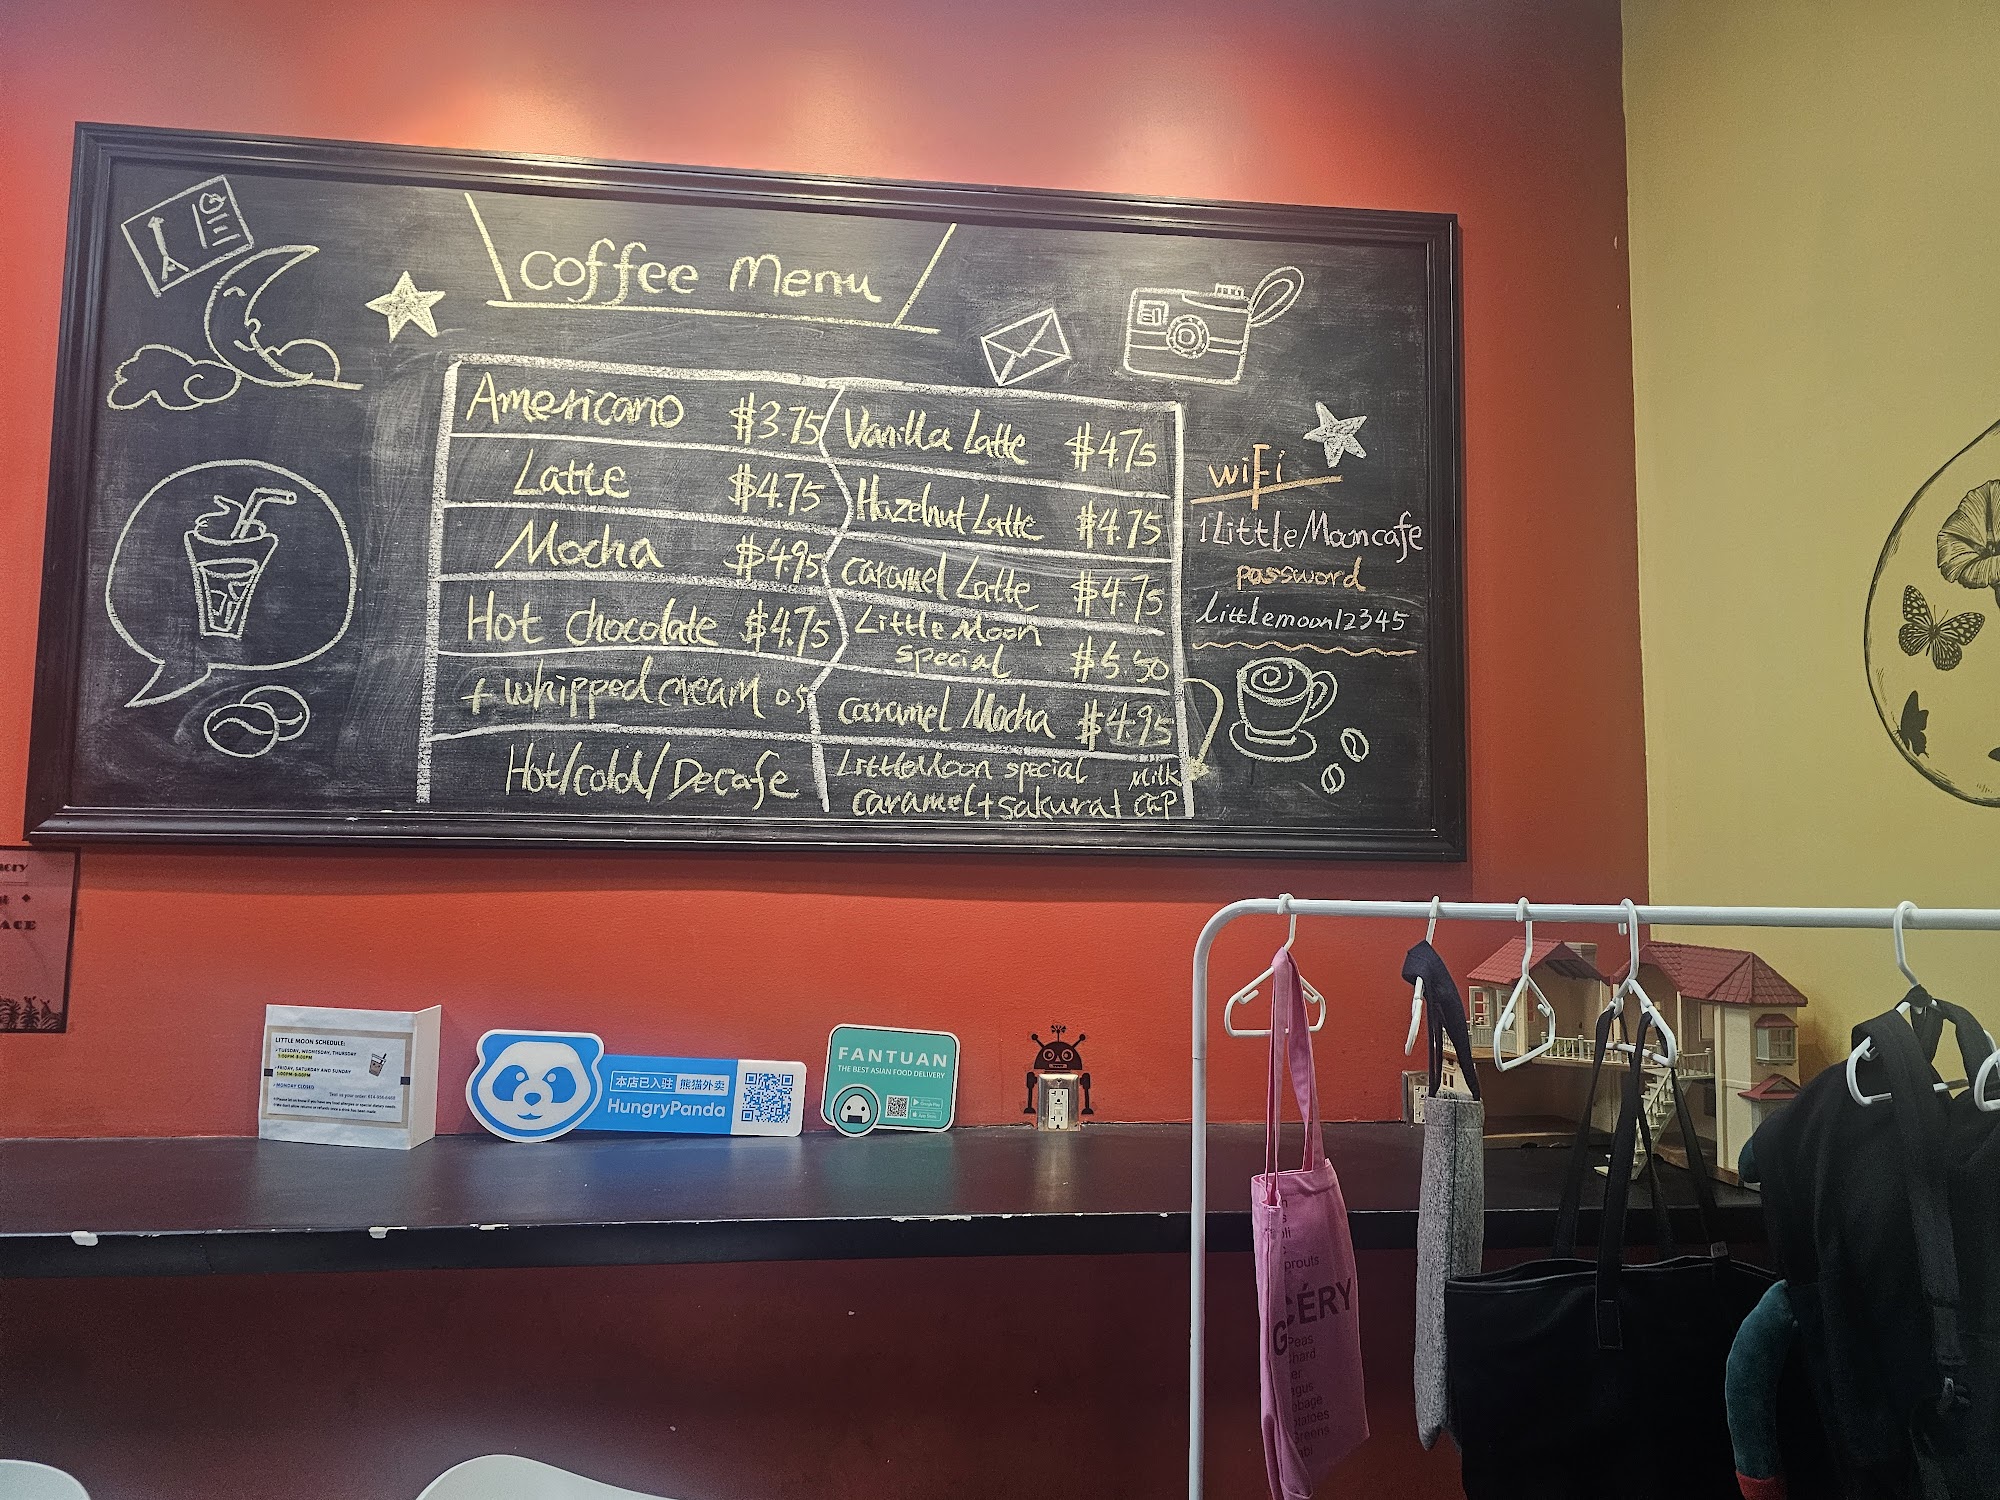 Coffee Menu
Americano $3.75
Latte $4.75
Mocha $4.95
Hot chocolate $4.75
+ whipped cream 0.5
Hot/cold/Decafe
Vanilla Latte $4.75
Hazelnut Latte $4.75
caramel Latte $4.75
Little Moon
special $5.50
caramel Mocha $4.95
LittleMoon special Milk
caramel+sakura+ cap
wiFi
1LittleMooncafe
password
Littlemoon12345
ACE
LITTLE MOON SCHEDULE:
TUESDAY, WEDNESDAY, THURSDAY
1:00PM-8:00PM
FRIDAY, SATURDAY AND SUNDAY
1:00PM-9:00PM
MONDAY CLOSED
本店已入驻 熊猫外卖
HungryPanda
FANTUAN
THE BEST ASIAN FOOD DELIVERY
prouts
GCÉRY
Peas
hard
er
agus
bbage
otatoes
Greens
abi